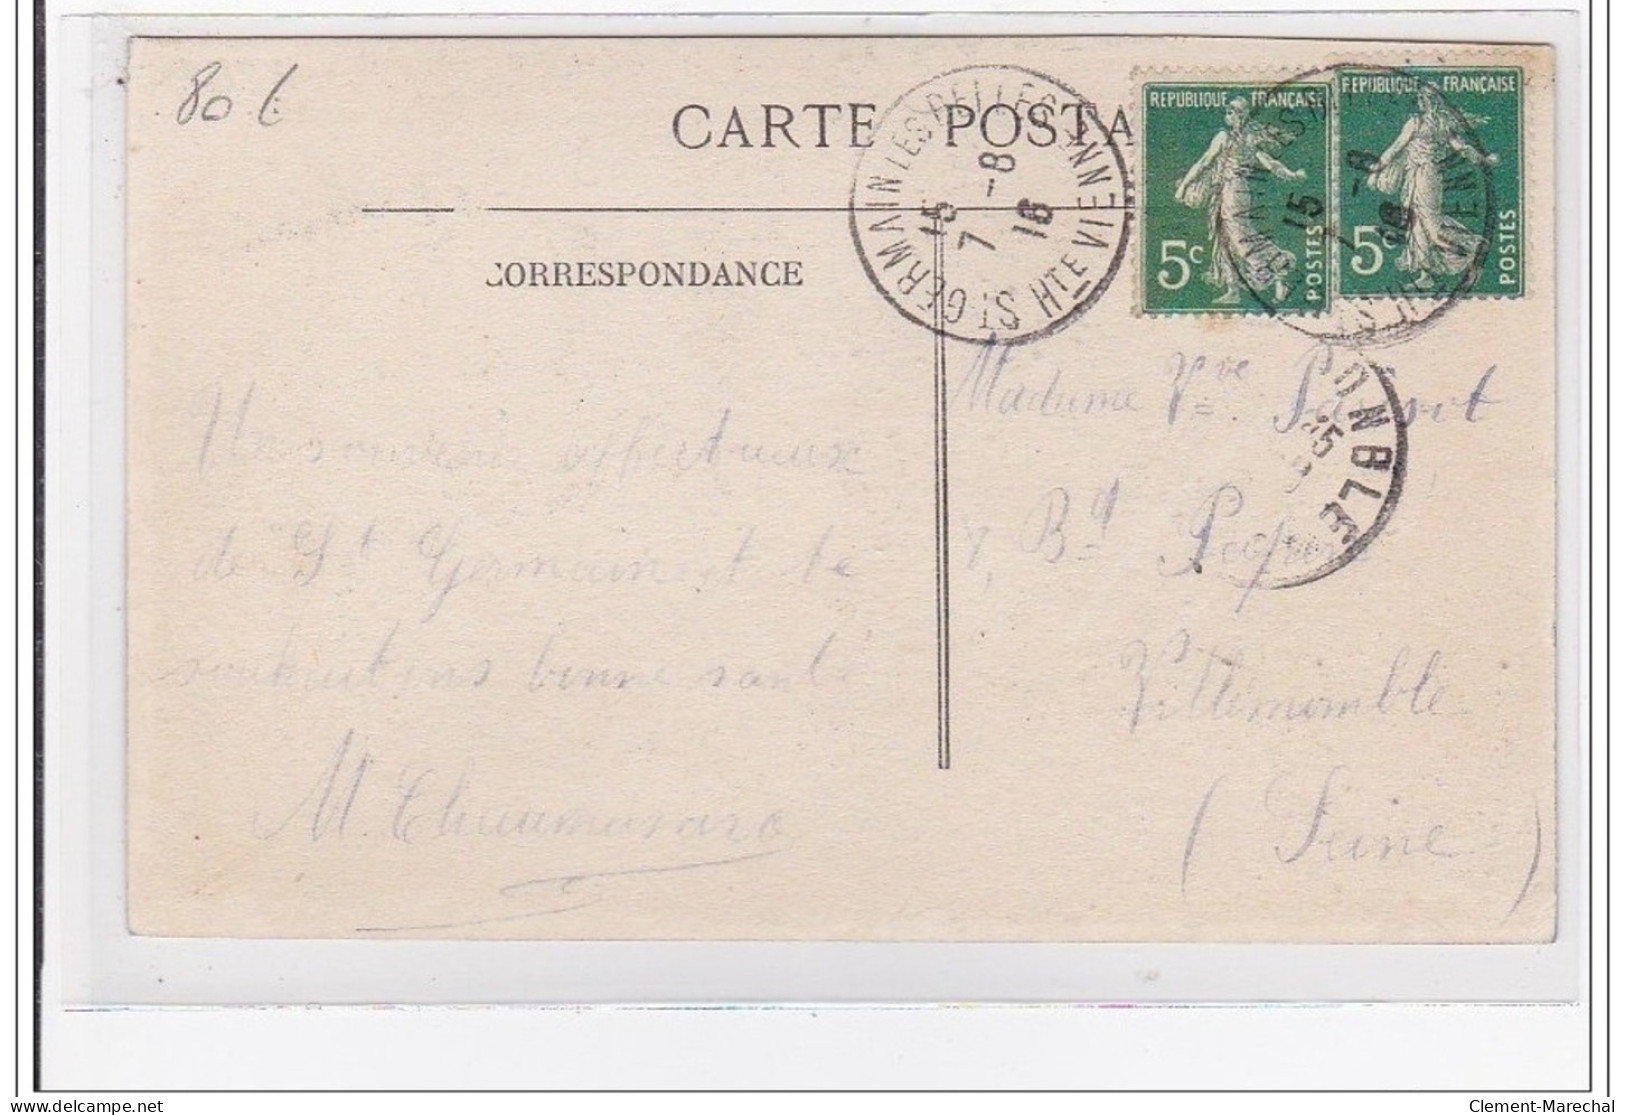 80 €
CARTE POSTA
CORRESPONDANCE
ST GERMAIN LES BELLES HTE VIENNE
15 -8
7 16
REPUBLIQUE FRANÇAISE
5c
POSTES
REPUBLIQUE FRANÇAISE
5c
POSTES
15 -8
OMBLE
Madame Vve
Bd
Villemomble
(Seine)
Un souvenir affectueux
de St Germain et te
souhaitons bonne santé
M.
Clement-Marechal